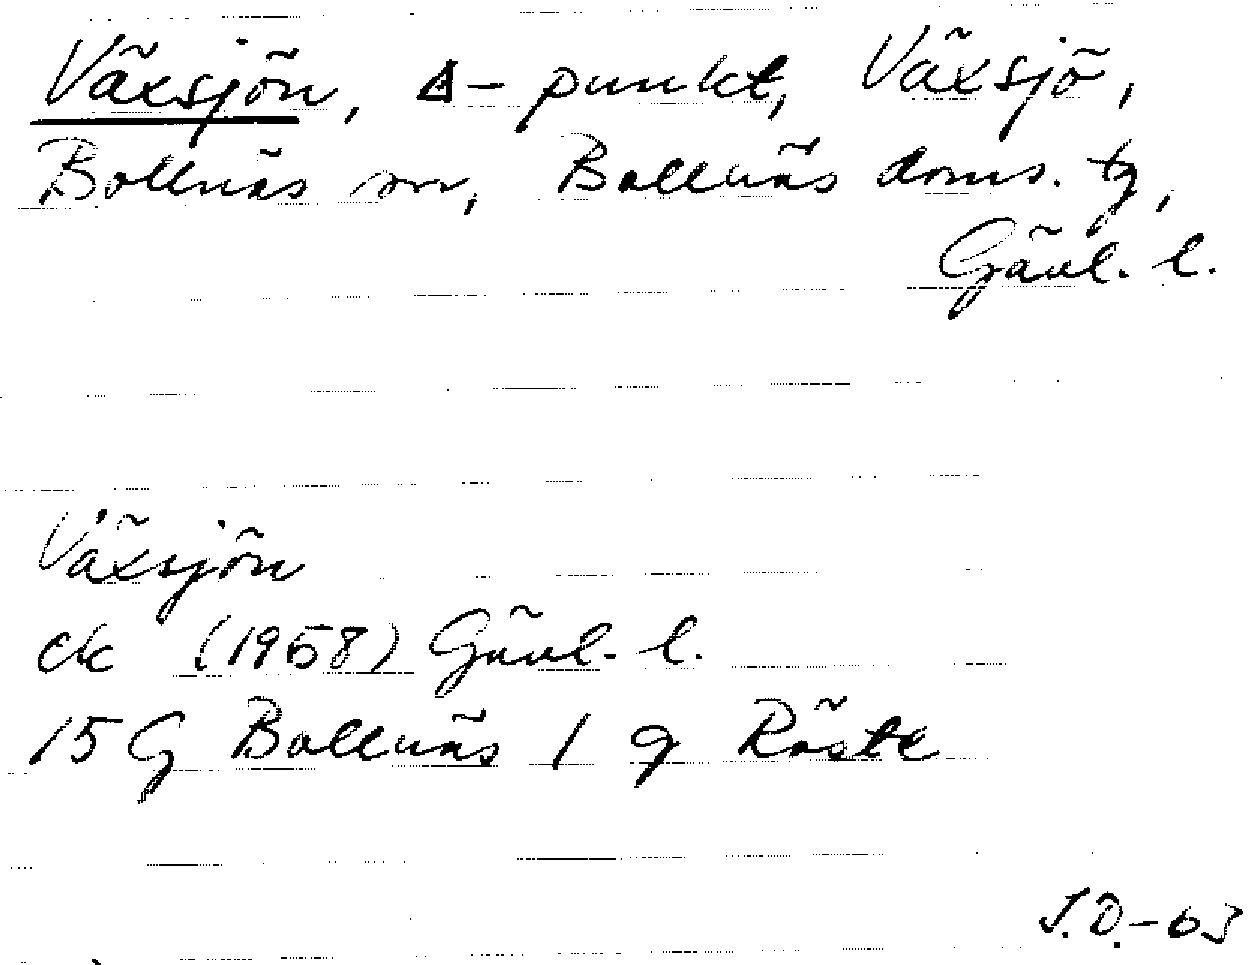 Växsjön, Δ-punkt, Växsjö,
Bollnäs sn, Bollnäs doms. tg,
Gävl. l.
Växsjön
ek (1958) Gävl. l.
15 G Bollnäs 1 g Röste
J.Ö.-63